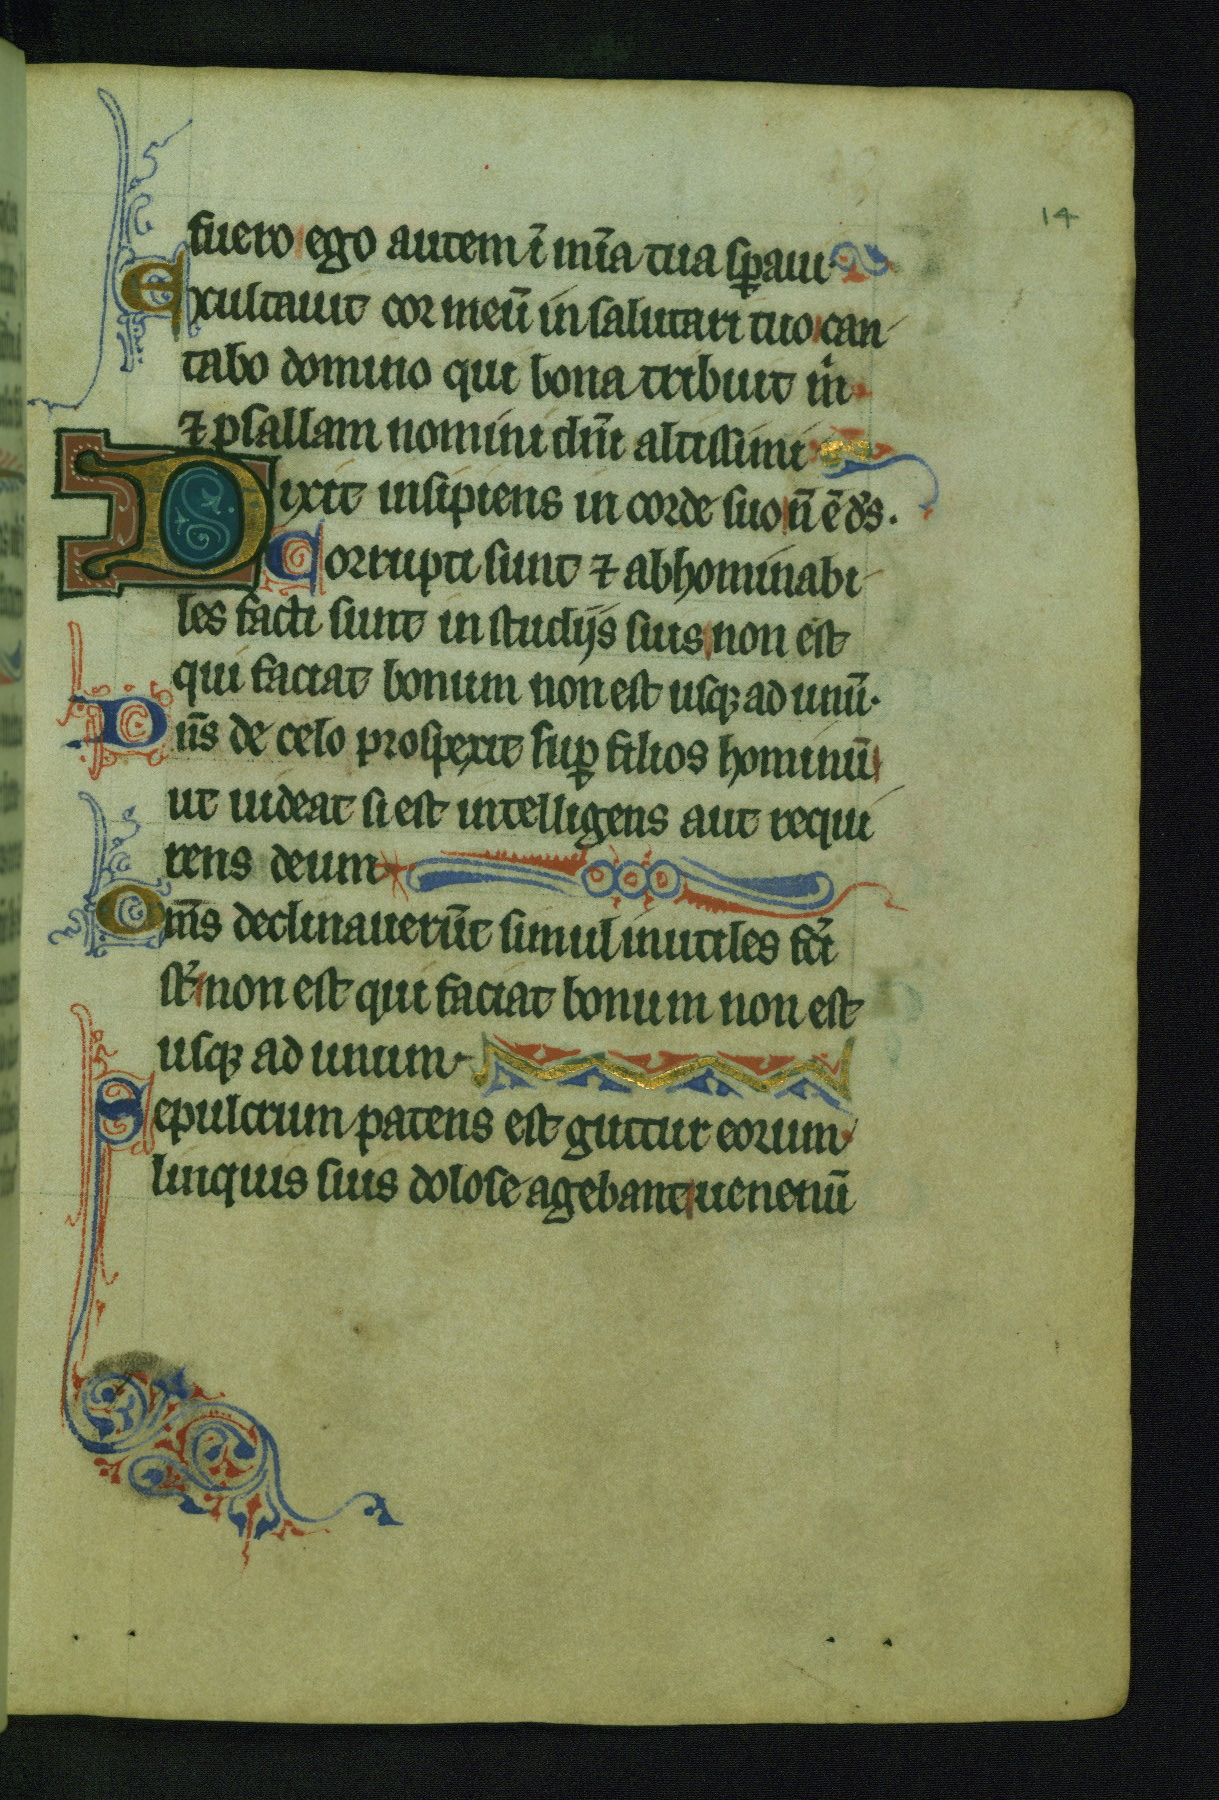 14
fuero ego autem ī mīa tua sꝑaui
Exultauit cor meū in salutari tuo can
tabo domino qui bona tribuit m̄
⁊ psallam nomini dn̄i altissimi
Dixit insipiens in corde suo n̄ ē ds̄.
Corrupti sunt ⁊ abhominabi
les facti sunt in studijs suis non est
qui faciat bonum non est usqꝫ ad unū.
Dn̄s de celo prospexit suꝑ filios hominū
ut uideat si est intelligens aut requi
rens deum
Om̄s declinauerūt simul inutiles fc̄i
st̄ non est qui faciat bonum non est
usqꝫ ad unum
Sepulcrum patens est guttur eorum
linquis suis dolose agebant uenenū